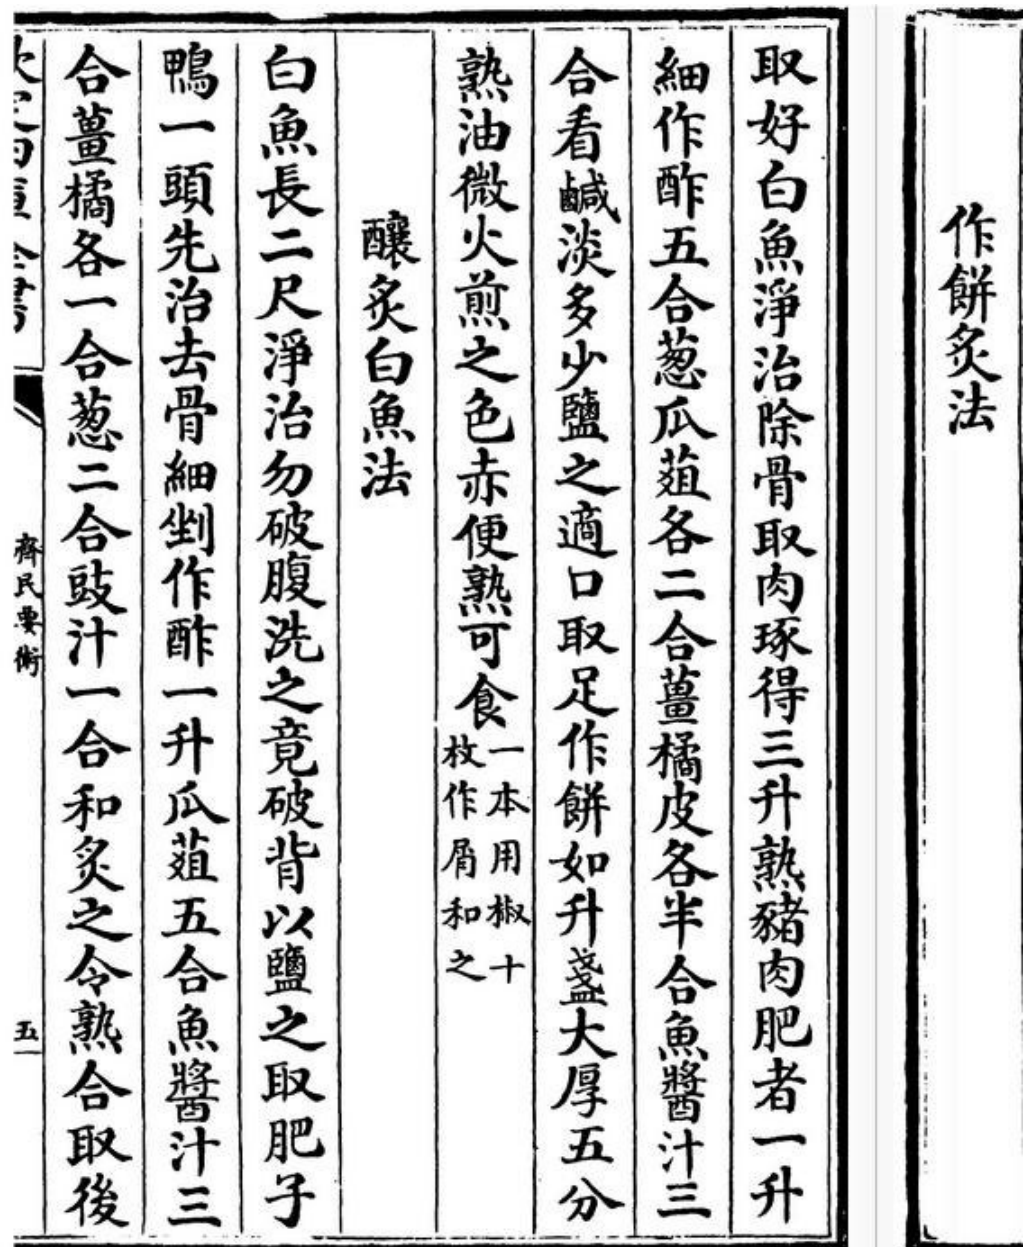 作餅炙法
取好白魚淨治除骨取肉琢得三升熟豬肉肥者一升
細作酢五合葱瓜菹各二合薑橘皮各半合魚醬汁三
合看鹹淡多少鹽之適口取足作餅如升盞大厚五分
熟油微火煎之色赤便熟可食一本用椒十
枚作屑和之
釀炙白魚法
白魚長二尺淨治勿破腹洗之竟破背以鹽之取肥子
鴨一頭先治去骨細剉作酢一升瓜菹五合魚醬汁三
合薑橘各一合葱二合豉汁一合和炙之令熟合取後
齊民要術
五